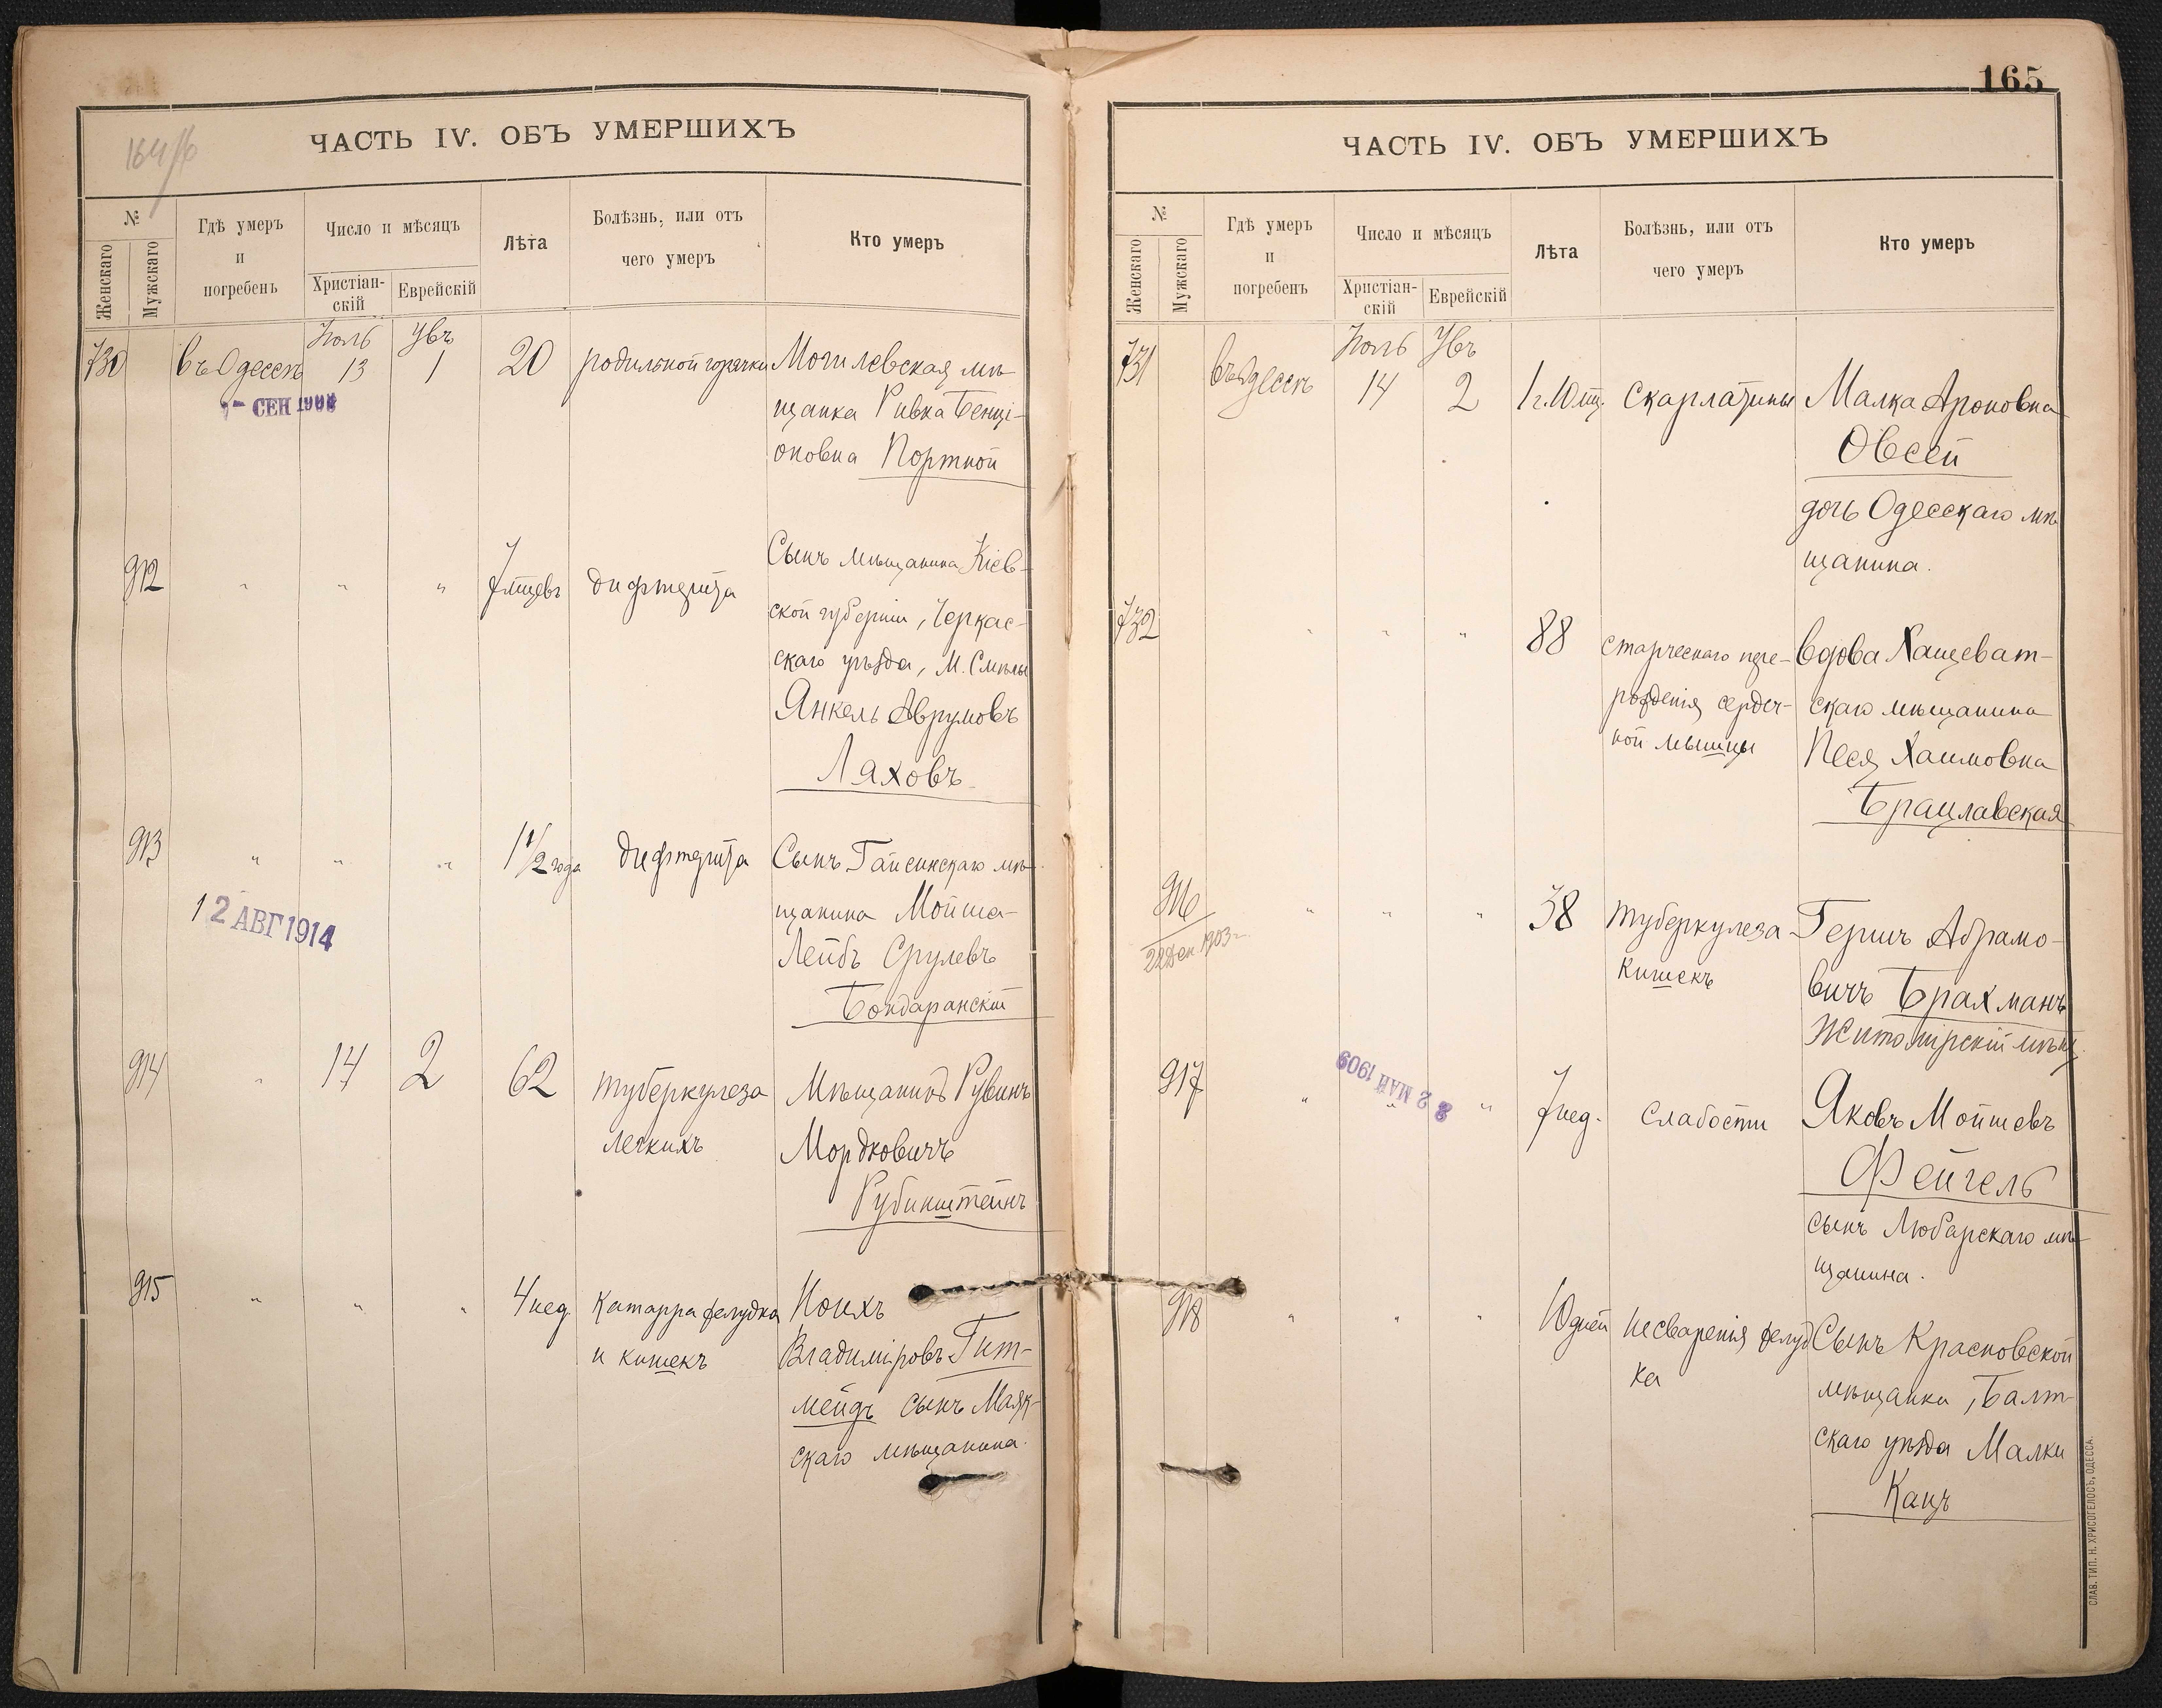 164/б
ЧАСТЬ IV. ОБЪ УМЕРШИХЪ
№
Женскаго
Мужскаго
Гдѣ умеръ
и
погребенъ
Число и мѣсяцъ
Христіан-
скій
Еврейскій
Лѣта
Болѣзнь, или отъ
чего умеръ
Кто умеръ
Іюль Увъ
730 въ Одессѣ 13 1 20 родильной горячки Могилевская мѣ-
СЕН
щанка Ривка Бенці-
оновна Портной
912 " " " 7 мцевъ дифтерита Сынъ мѣщанина Кіев-
ской губерніи, Черкас-
скаго уѣзда, М. Смѣлы
Янкель Аврумовъ
Ляховъ
913 " " " 1 1/2 года дифтерита Сынъ Гайсинскаго мѣ-
12 АВГ 1914
щанина Мойша-
Лейбъ Срулевъ
Бондаранскій
914 " 14 2 62 туберкулеза Мѣщанинъ Рувинъ
легкихъ Мордковичъ
Рубинштейнъ
915 " " " 4 нед. Катарра желудка Ноихъ
и кишекъ Владиміровъ Гит-
мейдъ сынъ Маяк-
скаго мѣщанина.
165
ЧАСТЬ IV. ОБЪ УМЕРШИХЪ
№
Женскаго
Мужскаго
Гдѣ умеръ
и
погребенъ
Число и мѣсяцъ
Христіан-
скій
Еврейскій
Лѣта
Болѣзнь, или отъ
чего умеръ
Кто умеръ
Іюль Увъ
731 въ Одессѣ 14 2 1 г. 10 мц. Скарлатины Малка Ароновна
Овсей
дочь Одесскаго мѣ-
щанина.
732 " " " 88 старческаго пере- вдова Хащеват-
рожденія сердеч- скаго мѣщанина
ной мышцы Песя Хаимовна
Брацлавская
916 " " " 38 туберкулеза Гершъ Абрамо-
22 Дек. 1903 г.
кишекъ вичъ Брахманъ
Житомірскій мѣщ.
22 МАЙ 1909
917 " " " 7 нед. слабости Яковъ Мойшевъ
Фейгель
сынъ Любарскаго мѣ-
щанина.
918 " " " 10 дней несваренія желуд- Сынъ Красновской
ка мѣщанки, Балт-
скаго уѣзда Малки
Кацъ
СЛАВ. ТИП. Н. ХРИСОГЕЛОСЪ, ОДЕССА.